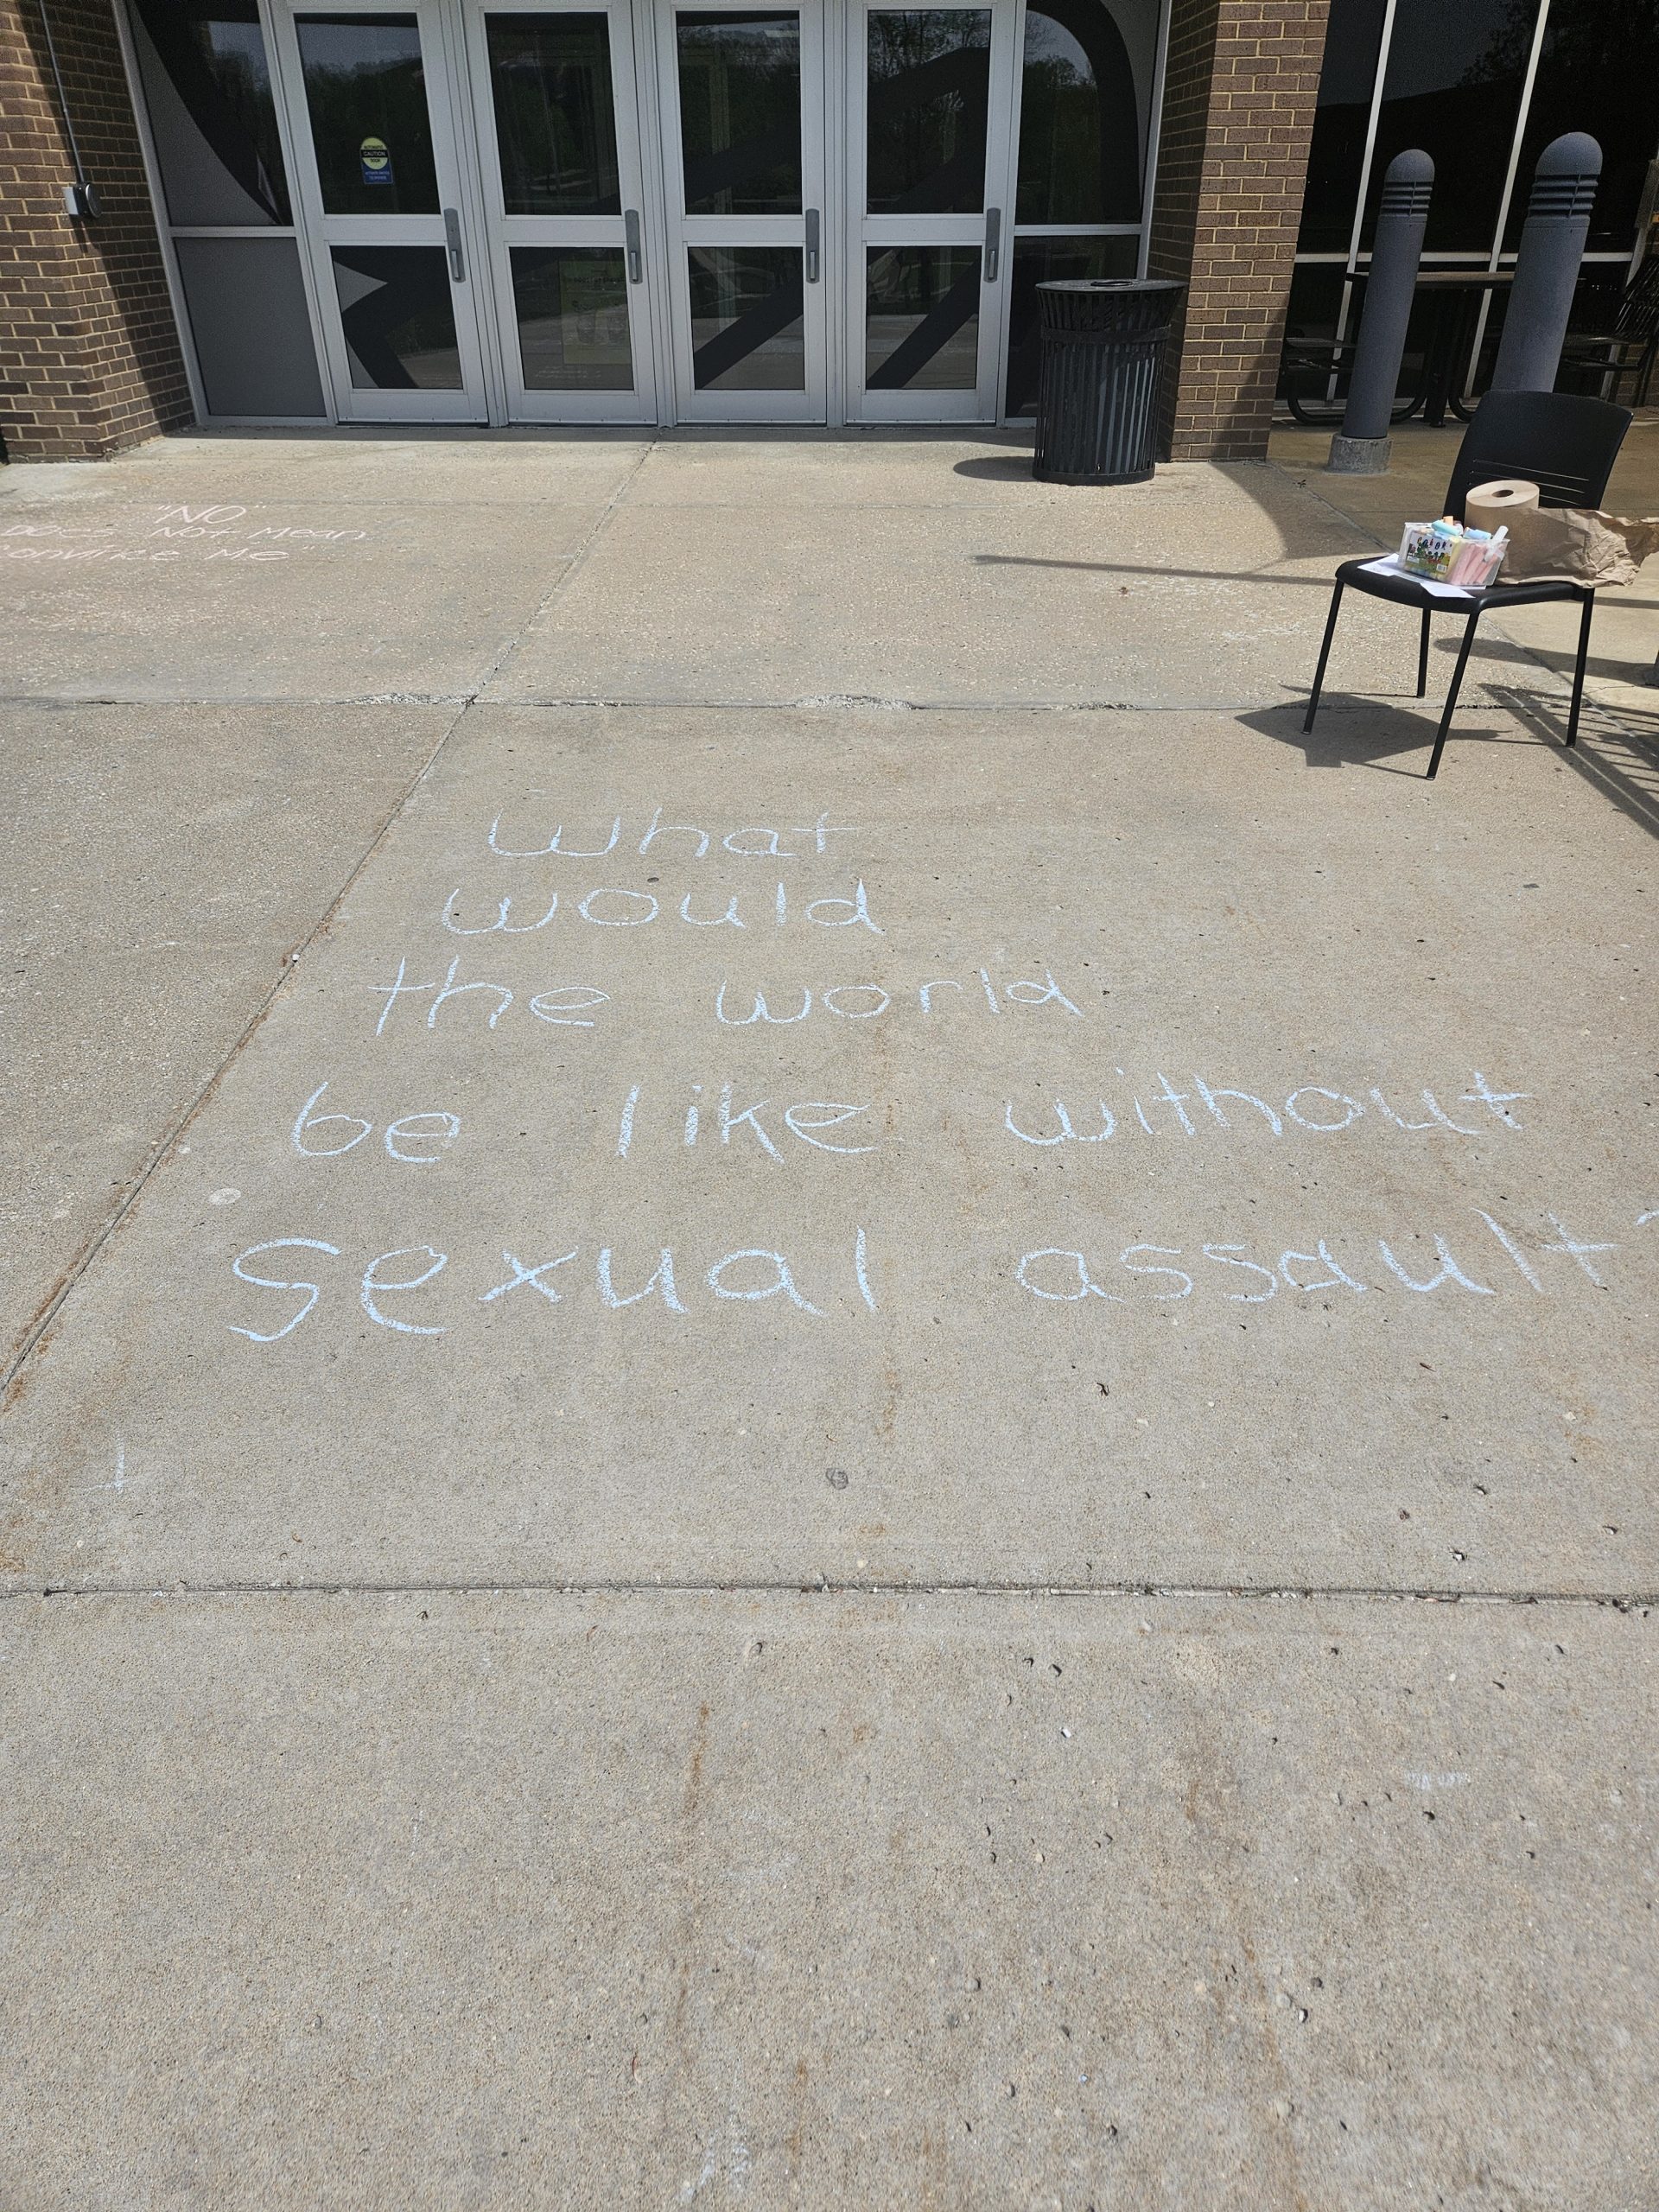 "NO"
Does Not Mean
convince Me
What
would
the world
be like without
sexual assault?
CAUTION